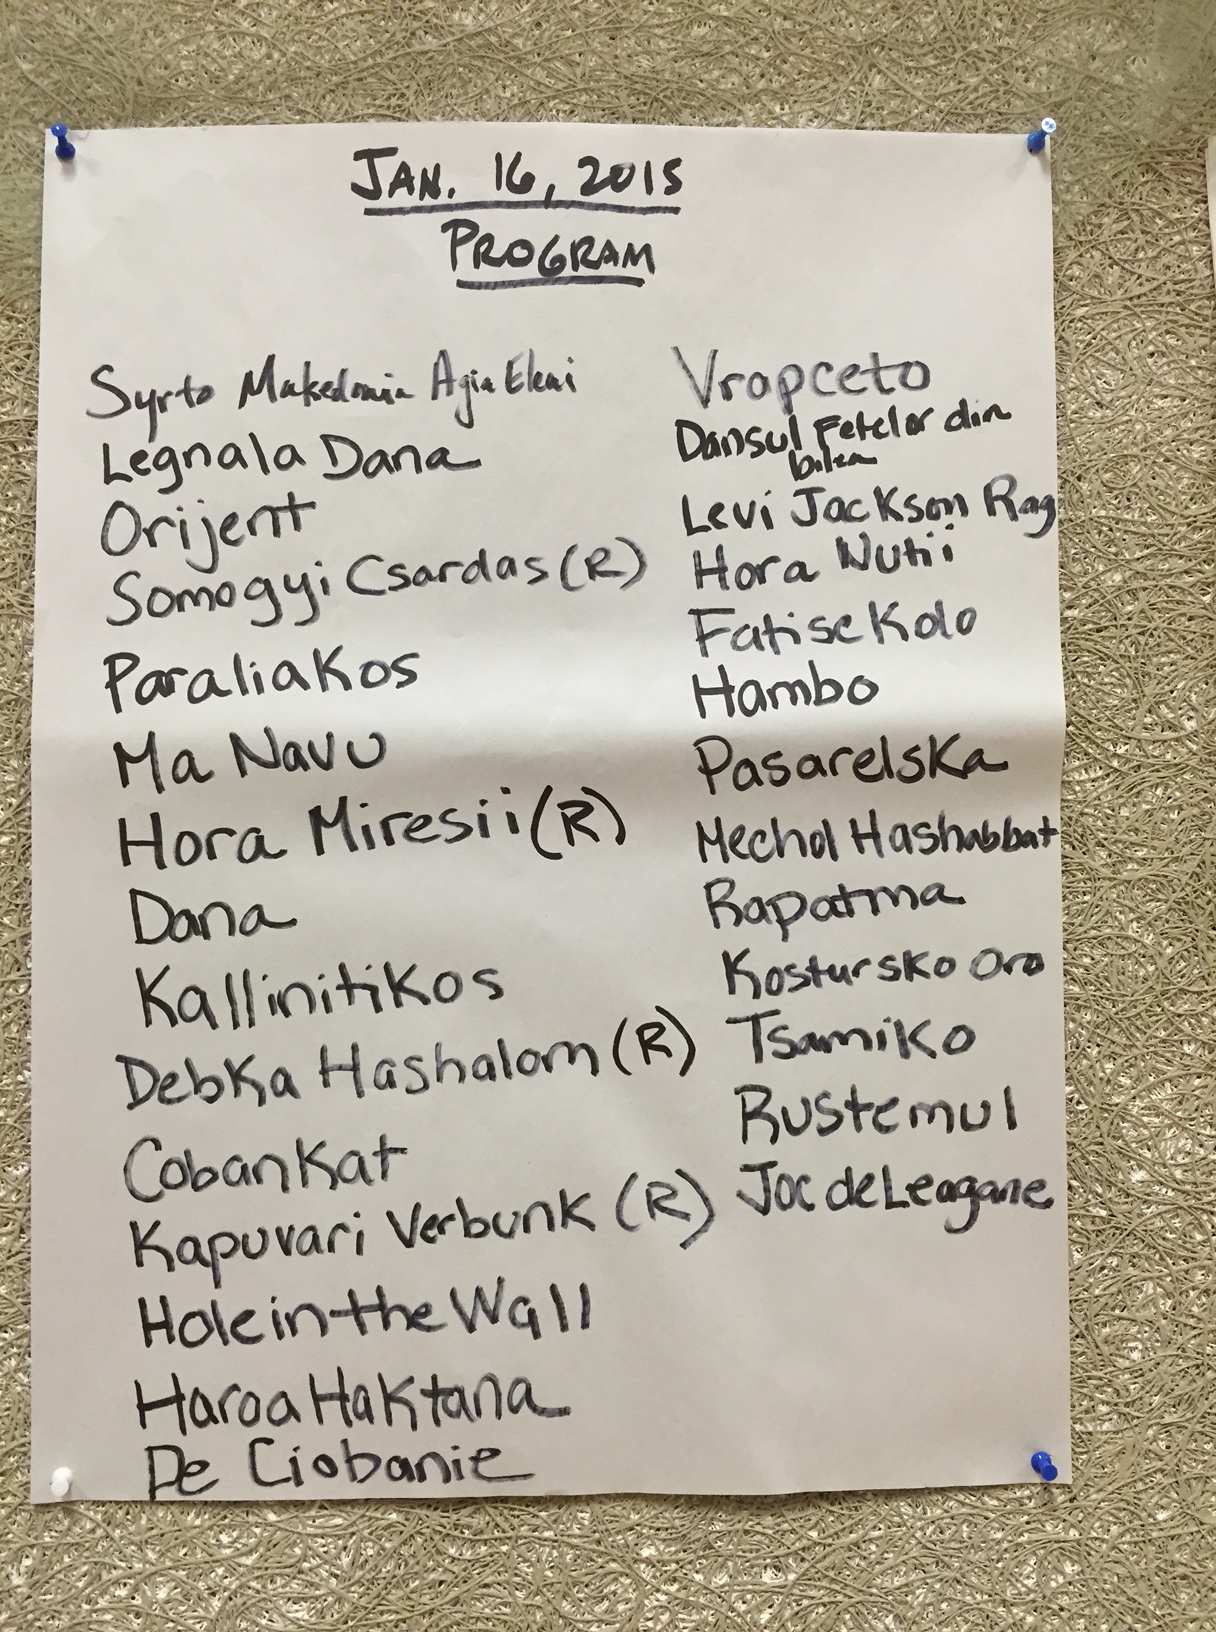 JAN. 16, 2015
PROGRAM
Syrto Makedonia Agia Eleni
Legnala Dana
Orijent
Somogyi Csardas (R)
Paraliakos
Ma Navu
Hora Miresii (R)
Dana
Kallinitikos
Debka Hashalom (R)
Cobankat
Kapuvari Verbunk (R)
Hole in the Wall
Haroa Haktana
De Ciobanie
Vropceto
Dansul Fetelor din
bilca
Levi Jackson Rag
Hora Nutii
Fatise Kolo
Hambo
Pasarelska
Mechol Hashabbat
Rapatma
Kostursko Oro
Tsamiko
Rustemul
Joc de Leagane